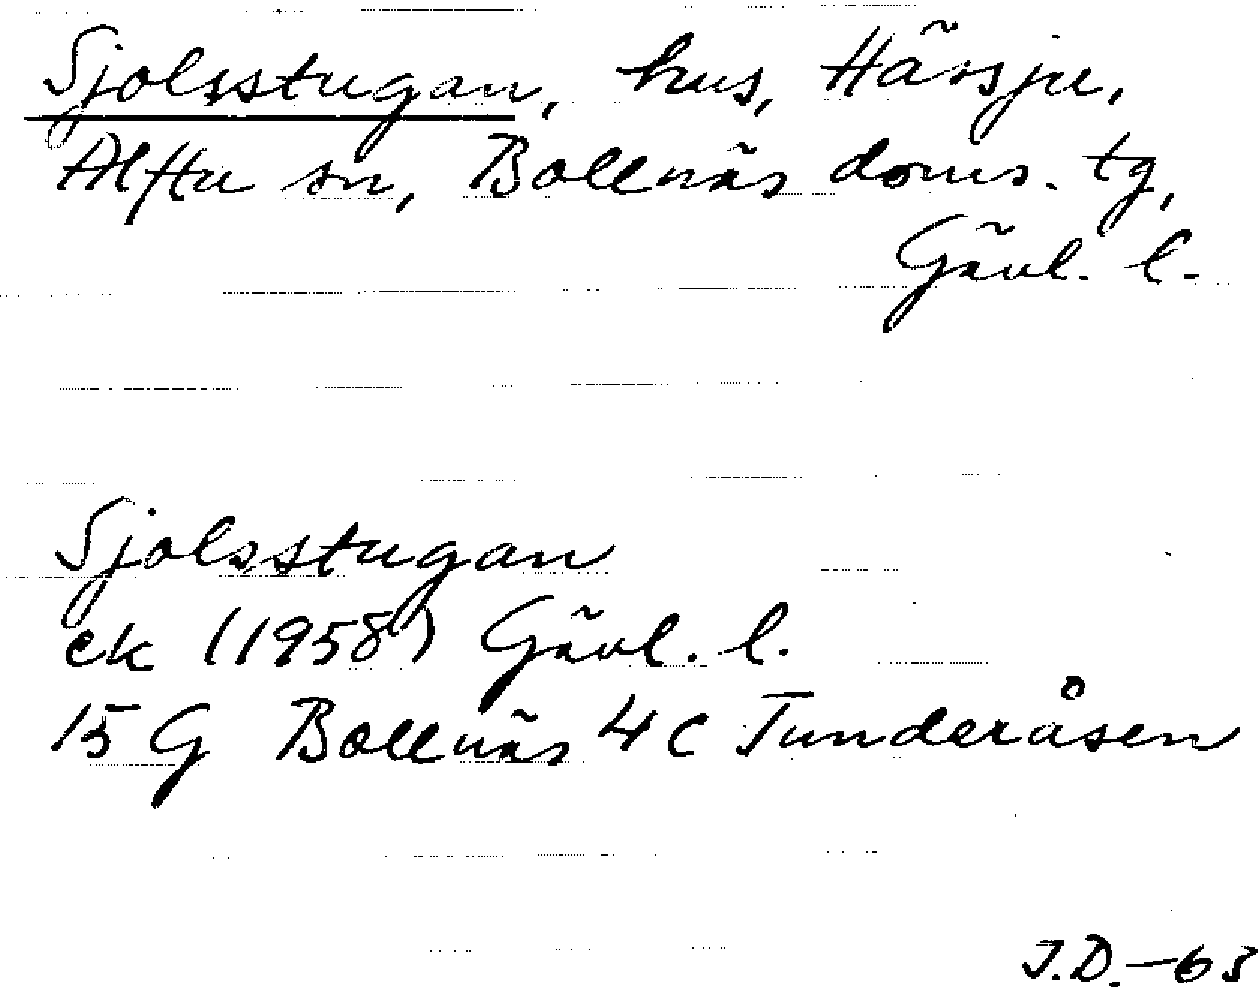 Sjolsstugan, hus, Hässju,
Alfta sn, Bollnäs doms. tg,
Gävl. l.
Sjolsstugan
ek (1958) Gävl. l.
15 G Bollnäs 4 c Tunderåsen
J.D.-63